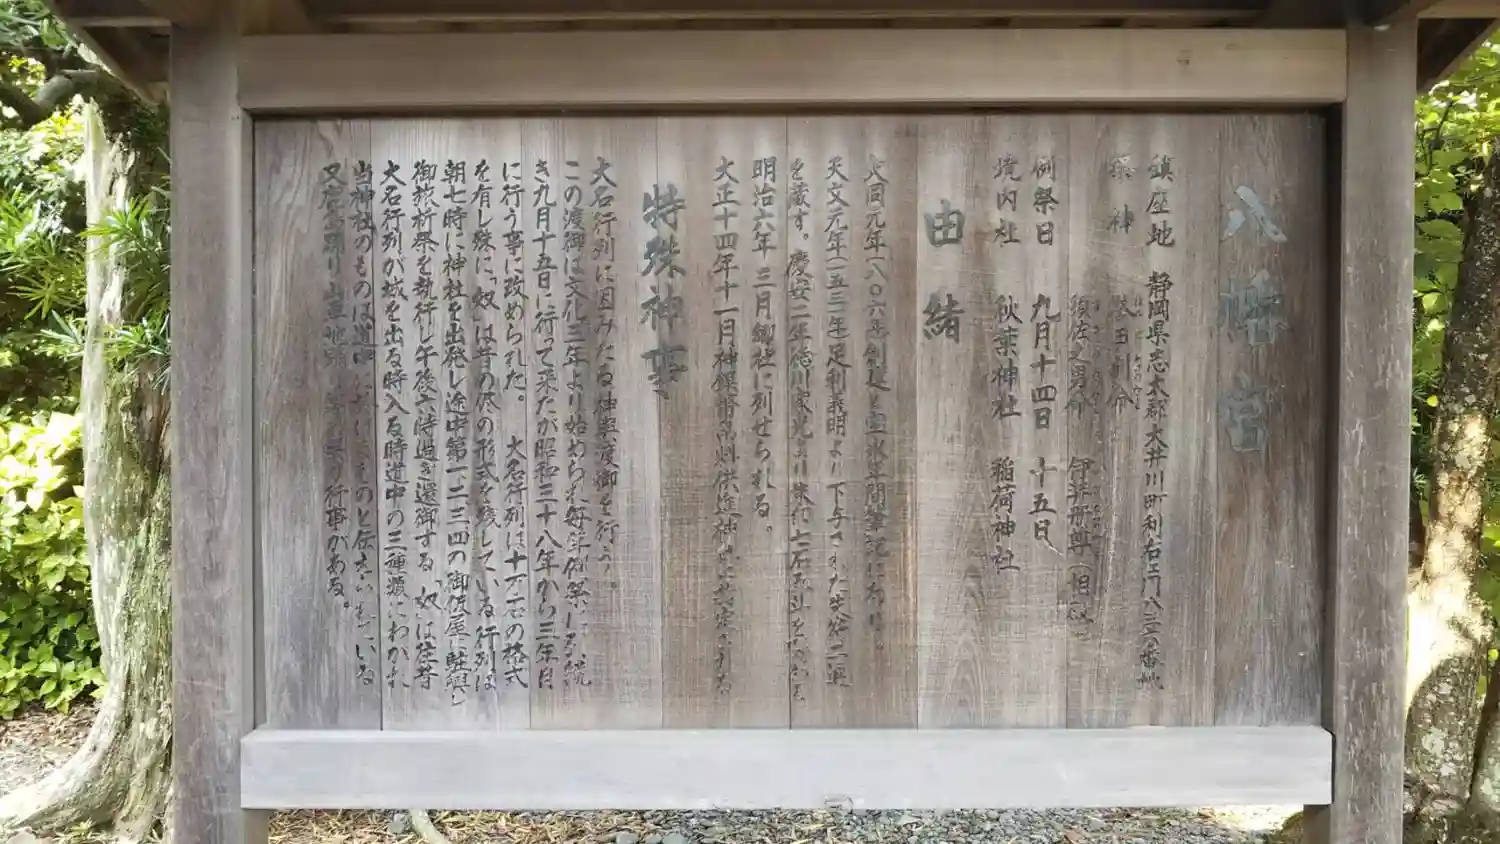 八幡宮
鎮座地 静岡県志太郡大井川町利右エ門
祭神
須佐之男命 伊弉冊尊(相殿)
例祭日 九月十四日 十五日
境内社 秋葉神社 稲荷神社
由緒
大同元年(八〇六年)創建と
天文元年(一五三二年)足利義明より下与された
を蔵す。慶安二年徳川家光より朱印七石
明治六年三月郷社に列せられる。
大正十四年十一月神饌幣帛料供進神社
特殊神事
大名行列に因みたる神輿渡御を行う。
この渡御は文化三年より始められ毎年例祭に引続
き九月十五日に行って来たが昭和三十八年から三年目
に行う事に改められた。 大名行列は十万石の格式
を有し殊に「奴」は昔の侭の形式を残している行列は
朝七時に神社を出発し途中第一二三四の御仮屋に駐輿し
御旅祈祭を執行し午後六時過ぎ還御する「奴」は往昔
大名行列が城を出る時入る時道中の三種類にわかれ
当神社のものは道中 ものと伝えられている
又鹿島踊り 行事がある。